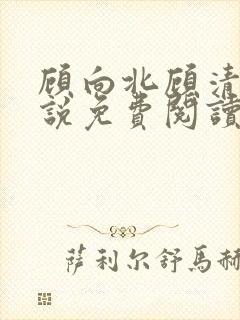 顾向北顾清
說免費閱讀
萨利尔舒馬赫